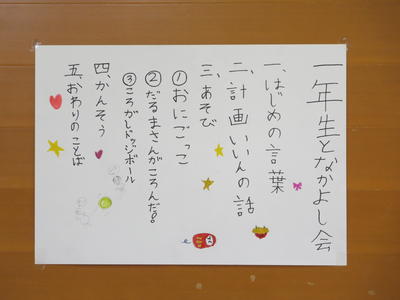 一年生となかよし会
一、はじめの言葉
二、計画いいんの話
三、あそび
①おにごっこ
②だるまさんがころんだ。
③ころがしドッジボール
四、かんそう
五、おわりのことば